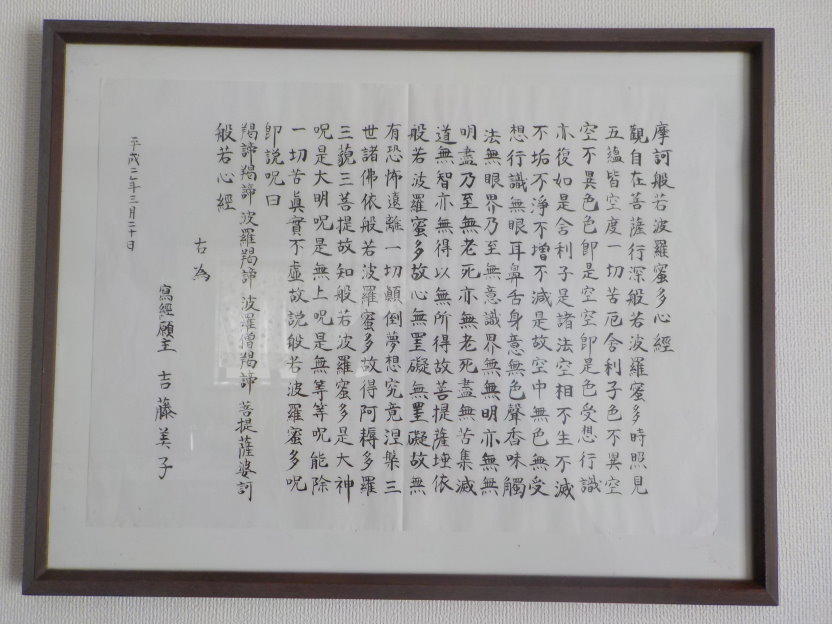 摩訶般若波羅蜜多心經
觀自在菩薩行深般若波羅蜜多時照見
五蘊皆空度一切苦厄舎利子色不異空
空不異色色即是空空即是色受想行識
亦復如是舎利子是諸法空相不生不滅
不垢不淨不增不減是故空中無色無受
想行識無眼耳鼻舌身意無色聲香味觸
法無眼界乃至無意識界無無明亦無無
明盡乃至無老死亦無老死盡無苦集滅
道無智亦無得以無所得故菩提薩埵依
般若波羅蜜多故心無罣礙無罣礙故無
有恐怖遠離一切顛倒夢想究竟涅槃三
世諸佛依般若波羅蜜多故得阿耨多羅
三藐三菩提故知般若波羅蜜多是大神
呪是大明呪是無上呪是無等等呪能除
一切苦眞實不虛故説般若波羅蜜多呪
即説呪曰
羯諦羯諦波羅羯諦波羅僧羯諦菩提薩婆訶
般若心經
右為
寫經願主 吉藤美子
平成二年三月二十日